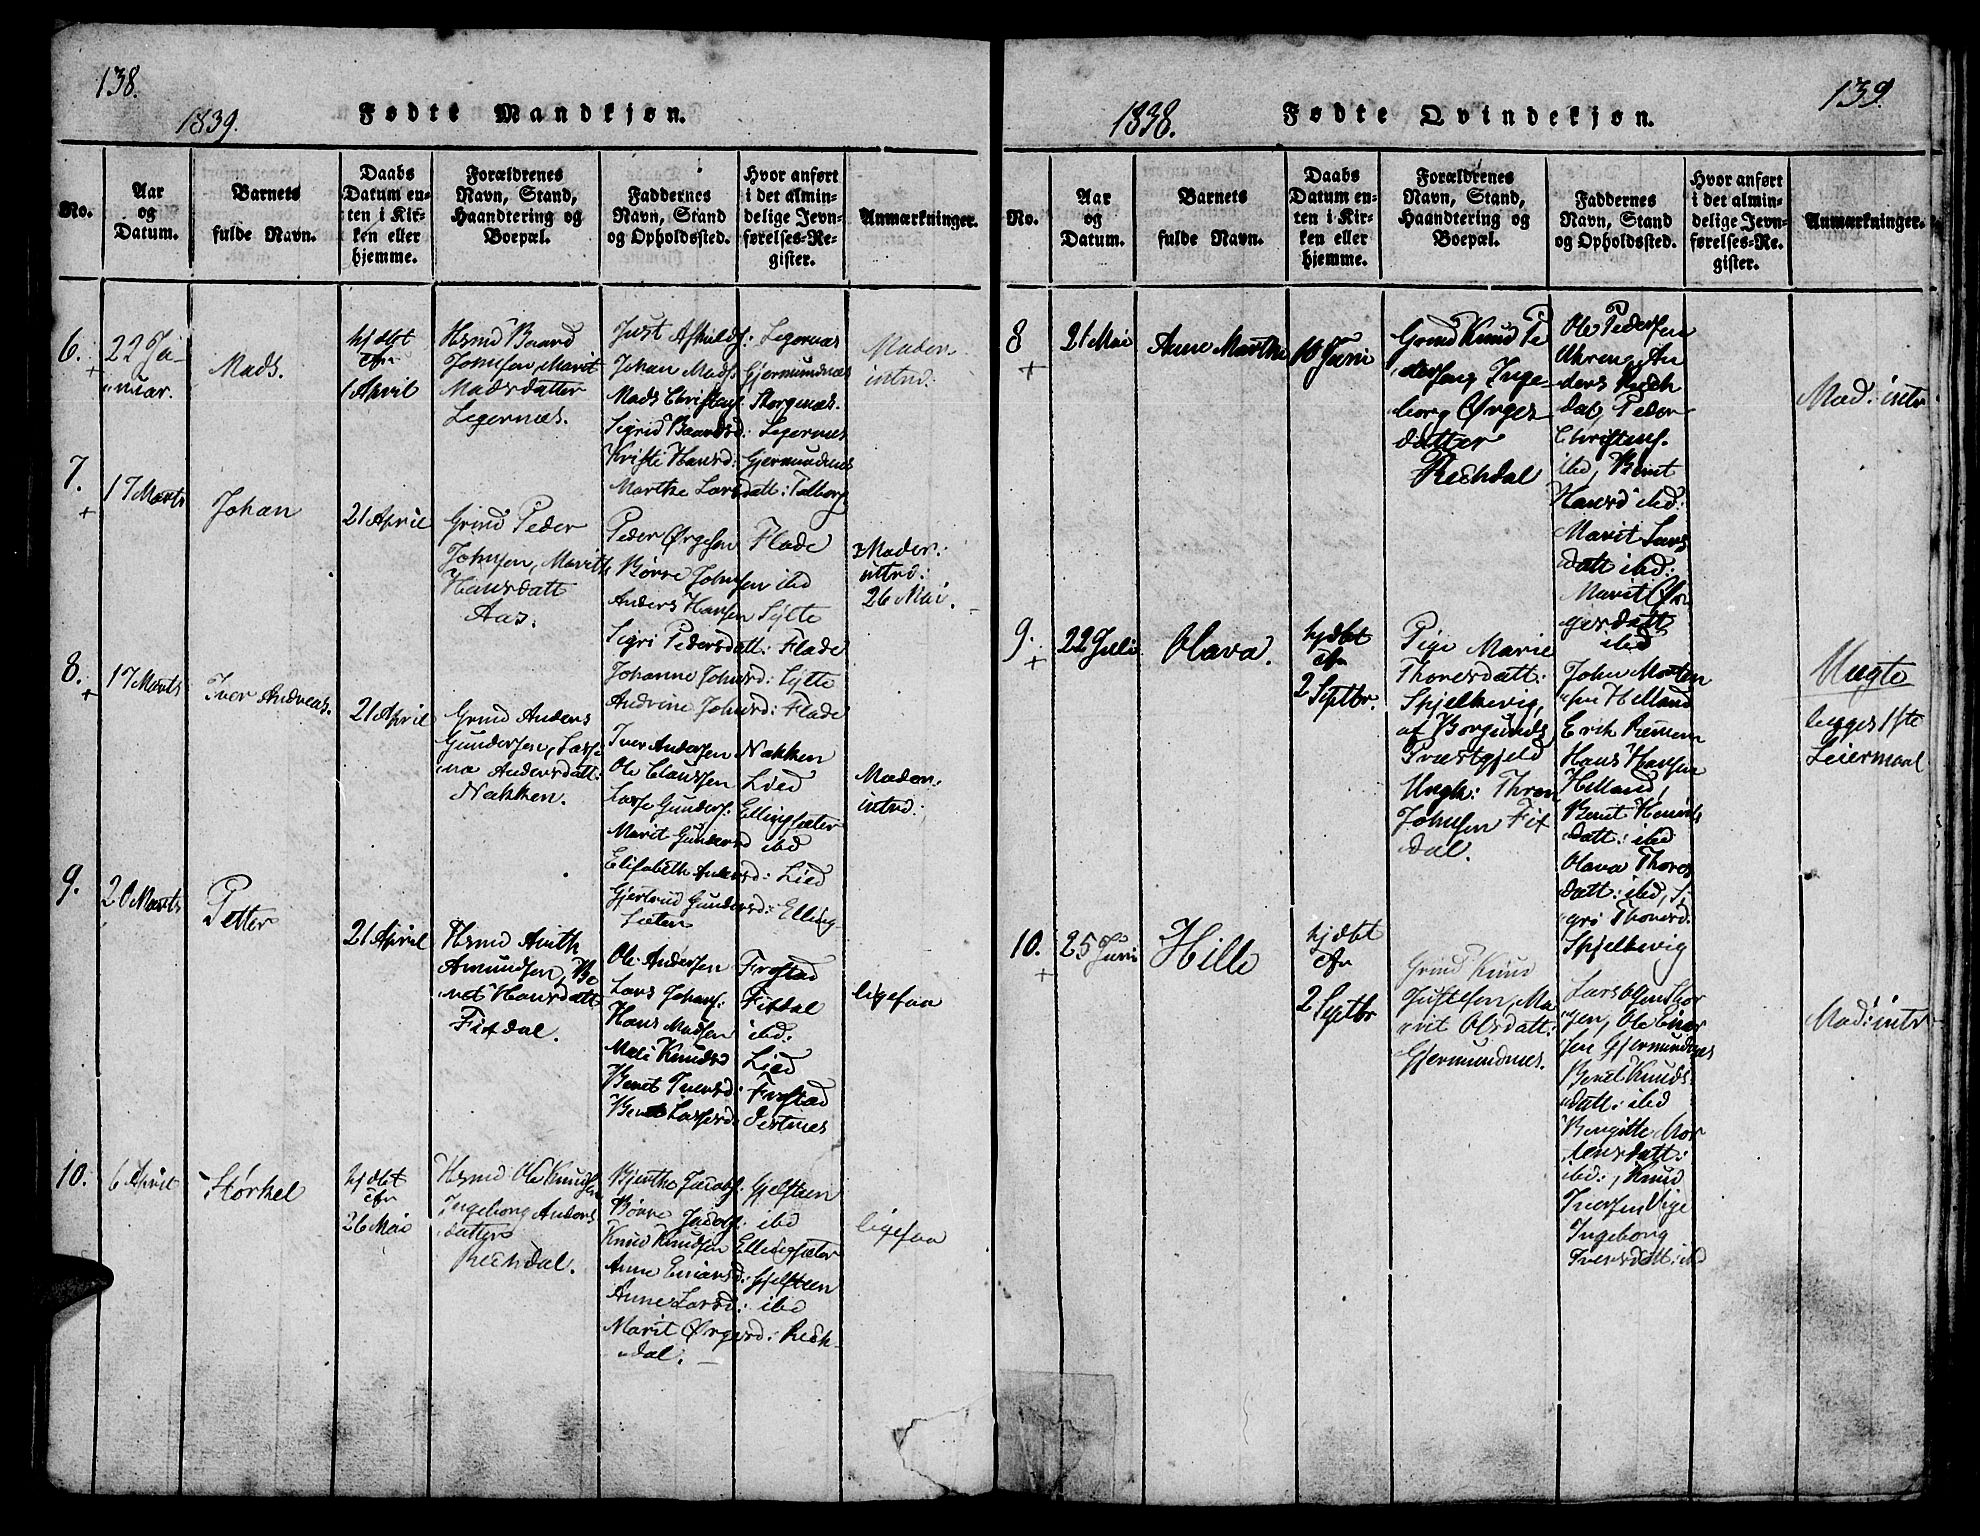 138.
1839.
Fødte Mandkjøn.
No.
Aar
og
Datum.
Barnets
fulde Navn.
Daabs
Datum en-
ten i Kir-
ken eller
hjemme.
Forældrenes
Navn, Stand,
Haandtering og
Boepæl.
Faddernes
Navn, Stand
og Opholdssted.
Hvor anført
i det almin-
delige Jevn-
førelses-Re-
gister.
Anmærkninger.
6.
+
22 Ja-
nuar.
Mads.
hjdbt
1 April
Hsmd Baard
Jonsen, Marit
Madsdatter
Legernæs.
Just Legernæs
Johan Mads: Gjermundnæs
Mads Christens: Borgenæs.
Sigrid Baardsd: Legernæs
Kristi Hansd: Gjermundnæs
Marthe Larsdatt: Talberg
Moder
intrd:
7.
+
17 Marts
Johan
21 April
Grmd Peder
Johnsen, Marith
Hansdatt
Aas.
Peder Ørgesen Flade
Børre Johnsen ibd
Anders Hansen Sylte
Sigri Pedersdatt: Flade
Johanne Johnsd: Sylte
Andrine Johnsd: Flade
Moder:
intrd:
26 Mai.
8.
+
17 Marts
Iver Andreas.
21 April
Grmd Anders
Gundersen, Lasse-
na Andersdatt:
Nakken.
Iver Andersen Nakken
Ole Claussen Lied
Lasse Gunders: Ellingsæter
Marit Gundersd ibd
Elisabeth Andersd: Lied
Gjertrud Gundersd: Elling-
sæter
Moder:
intrd:
9.
20 Marts
Petter
21 April
Hsmd
Amundsen, Be-
ret Hansdatt
Fixdal.
Ole Andersen Frostad
Lars Johans: Fixdal
Hans Madsen ibd:
Mali Knudsd Lied
Beret Iversd: Frostad
Beret Lassesd: Vestnæs
ligesaa
10.
6 April
Størkel
hjdbt
26 Mai
Hsmd Ole Knudsen
Ingeborg Anders
datter
Rechdal.
Bjerthe Jacobs: Gjelsteen
Børre Jacobs: ibd
Knud Knudsen Ellingsæter
Anne Einarsd: Gjelsteen
Anne Larsd: ibd
Marit Ørgersd: Rech-
dal.
ligesaa
139.
1838.
Fødte Qvindekjøn.
No.
Aar
og
Datum.
Barnets
fulde Navn.
Daabs
Datum en-
ten i Kir-
ken eller
hjemme.
Forældrenes
Navn, Stand,
Haandtering og
Boepæl.
Faddernes
Navn, Stand
og Opholdssted.
Hvor anført
i det almin-
delige Jevn-
førelses-Re-
gister.
Anmærkninger.
8
+
21 Mai
Anne Marthe
10 Juni
Grmd Knud Pe
dersen, Inge-
borg Ørges
datter
Rechdal
Ole Pedersen
An
ders Rech
dal, Peder
Christens.
ibd, Beret
Hansd ibd:
Marit Lars
datt ibd:
Marit Ør
gersdatt
ibd
Mod: intr
9.
+
22 Juli
Olava.
hjdbt
2 Septbr.
Pige Marie
Thoresdatt:
Spjelkevig,
af Borgunds
Præstgjeld
Ungk: Thron
Johnsen Fix
dal.
John Morten
sen Helland
Erik
Hans Hansen
Helland,
Beret
datt: ibd
Olava Thores
datt: ibd, Si
gri Thoresd:
Spjelkevig
Uægte
begges 1ste
Leiermaal
10.
+
25 Juni
Hille
hjdbt
2 Septbr
Grmd Knud
Justesen, Ma
rit Olsdatt:
Gjermundnæs.
Lars Olsen
sen, Ole Einar
sen Gjermundnæs
Beret Knuds
datt: ibd
Bergitte Mor
tensdatt:
ibd:, Knud
Iversen Vige
Ingeborg
Iversdatt: ibd
Mod: intr